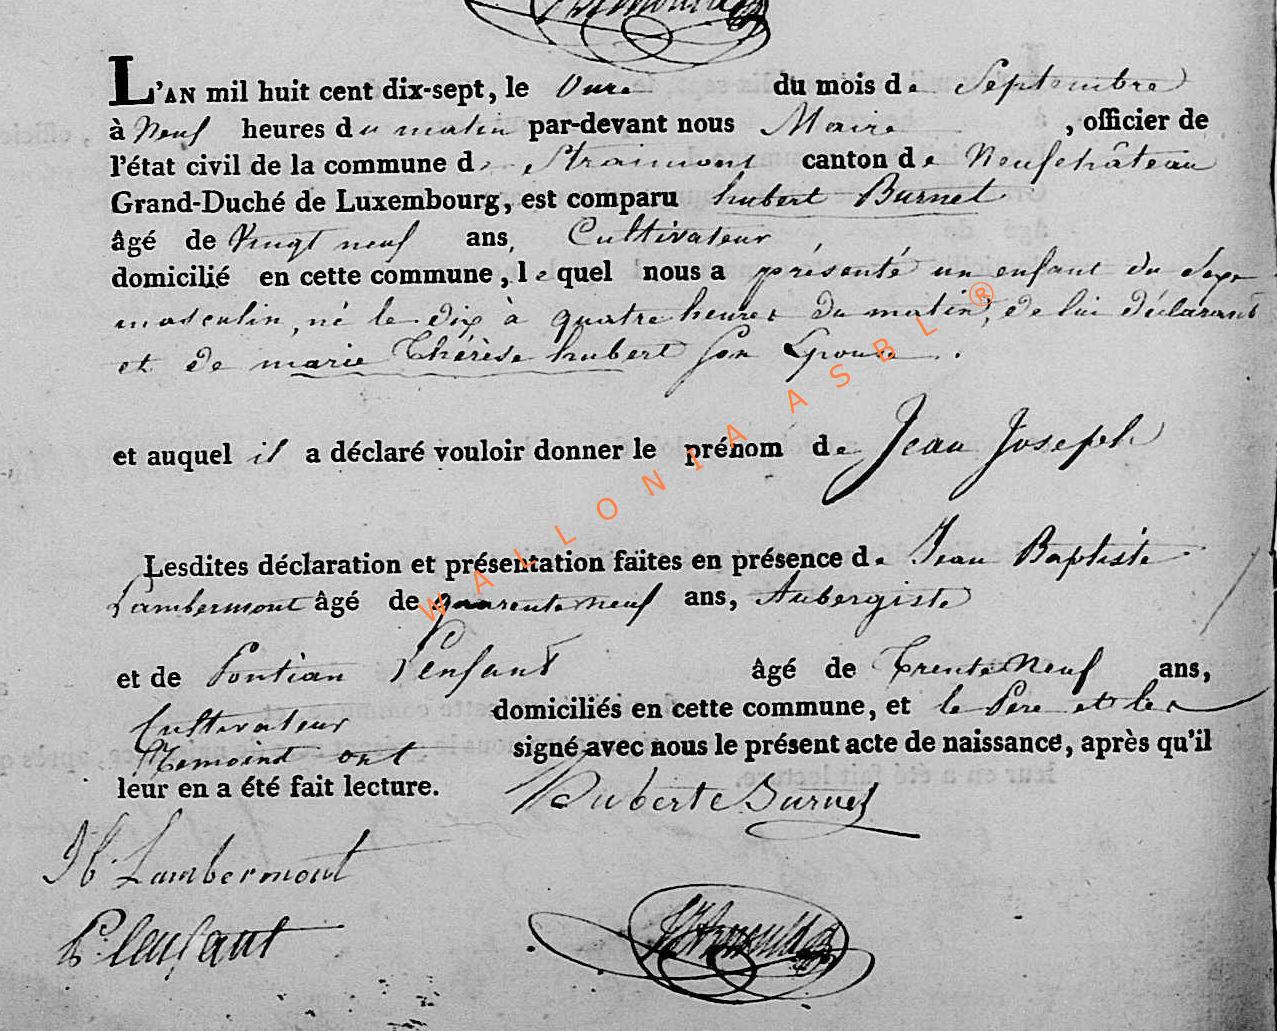 L'AN mil huit cent dix-sept, le onze du mois de Septembre
à Neuf heures du matin par-devant nous Maire, officier de
l'état civil de la commune de Straimont canton de Neufchâteau
Grand-Duché de Luxembourg, est comparu hubert Burnet
âgé de Vingt neuf ans, Cultivateur,
domicilié en cette commune, lequel nous a présenté un enfant du Sexe
masculin, né le dix à quatre heures du matin, de lui déclarant
et de marie Thérèse hubert son Epouse.
et auquel il a déclaré vouloir donner le prénom de Jean Joseph
Lesdites déclaration et présentation faites en présence de Jean Baptiste
Lambermont âgé de quarente neuf ans, Aubergiste
et de Pontian Lenfant âgé de Trente Neuf ans,
Cultivateur domiciliés en cette commune, et le Père et les
Temoins ont signé avec nous le présent acte de naissance, après qu'il
leur en a été fait lecture.
Hubert Burnet
JB. Lambermont
P. lenfant
WALLONIA ASBL ®